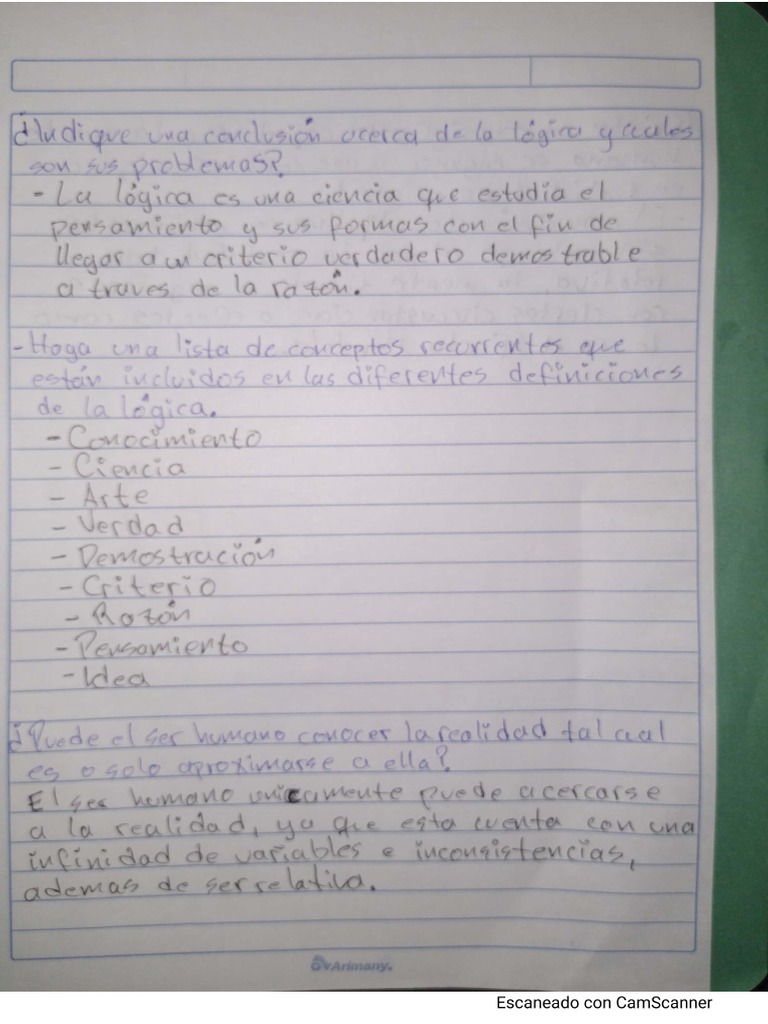 ¿Indique una conclusión acerca de la lógica y cuales
son sus problemas?
- La lógica es una ciencia que estudia el
pensamiento y sus formas con el fin de
llegar a un criterio verdadero demostrable
a traves de la razón.
- Haga una lista de conceptos recurrentes que
están incluidos en las diferentes definiciones
de la lógica.
- Conocimiento
- Ciencia
- Arte
- Verdad
- Demostración
- Criterio
- Razón
- Pensamiento
- Idea
¿Puede el ser humano conocer la realidad tal cual
es o solo aproximarse a ella?
El ser humano unicamente puede acercarse
a la realidad, ya que esta cuenta con una
infinidad de variables e inconsistencias,
ademas de ser relativa.
Arimany.
Escaneado con CamScanner